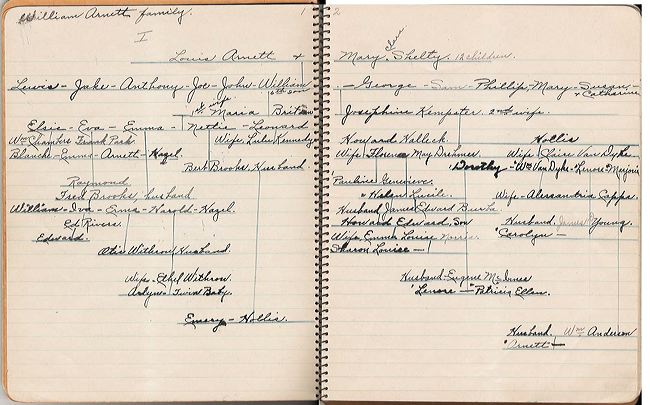 William Arnett family. 1
I
Louis Arnett +
Lewis - Jake - Anthony - Joe - John - William
6th son
1st wife
Maria Britton
Elsie - Eva - Emma - Nettie - Leonard
Wm Chambers Frank Park Wife Lulu Kennedy
Blanche - Emma - Arnett - Hazel.
Bert Brooks, Husband
Raymond
Fred Brooks, husband
William - Iva - Erma - Harold - Hazel.
Ed Rivers.
Edward.
Otis Withrow Husband.
Wife - Ethel Withrow.
Arlyn - Twin Baby.
Emery - Hollis.
2
Mary Shelty. 12 children.
- George - Sam - Phillip, Mary - Susan -
+ Catharine
Josephine Kempster. 2nd wife.
Howard Halleck. Hollis
Wife Florence May Wife Claire Van Dyke
Dorothy - Wm Van Dyke - Lenore - Marjorie
Pauline Genevieve.
" Helen Lucile. Wife - Alessandria Cappa.
Husband James Edward Husband James Young.
Howard Edward, Son Carolyn -
Wife Emma Louise Norris.
Sharon Louise -
Husband - Eugene McInnes
Lenore - Patricia Ellen.
Husband. Wm Anderson
Arnett -